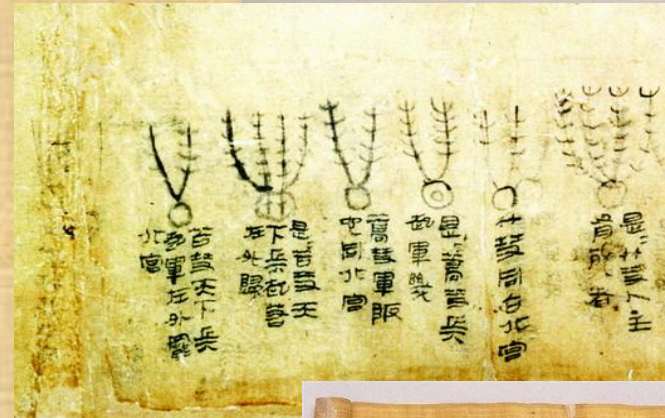 是竹彗人主
有死者
竹彗同占北宮
是蒿彗兵
起軍幾
蒿彗軍阪
它同北宮
是苦彗天
下兵起若
在外歸
苦彗天下兵
起軍在外罷
北宮